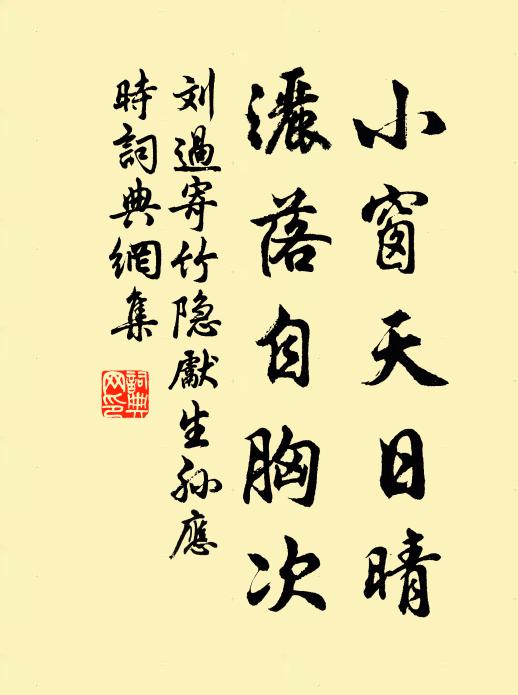 小窗天日晴
灑落自胸次
刘過寄竹隐獻生孙應
時詞典網集
詞典
网印